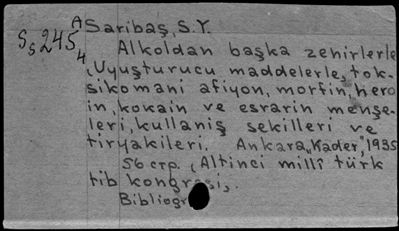 A Saribaş, S.Y.
S5245
4
Alkoldan başka zehirlerle
(Uyuşturucu maddelerle, tok-
sikomani afiyon, morfin, hero
in, kokain ve esrarin menşe-
leri, kullaniş sekilleri ve
tiryakileri. Ankara, "Kader", 1935
56 стр. (Altinci millî türk
tib kongresi,
Bibliogr